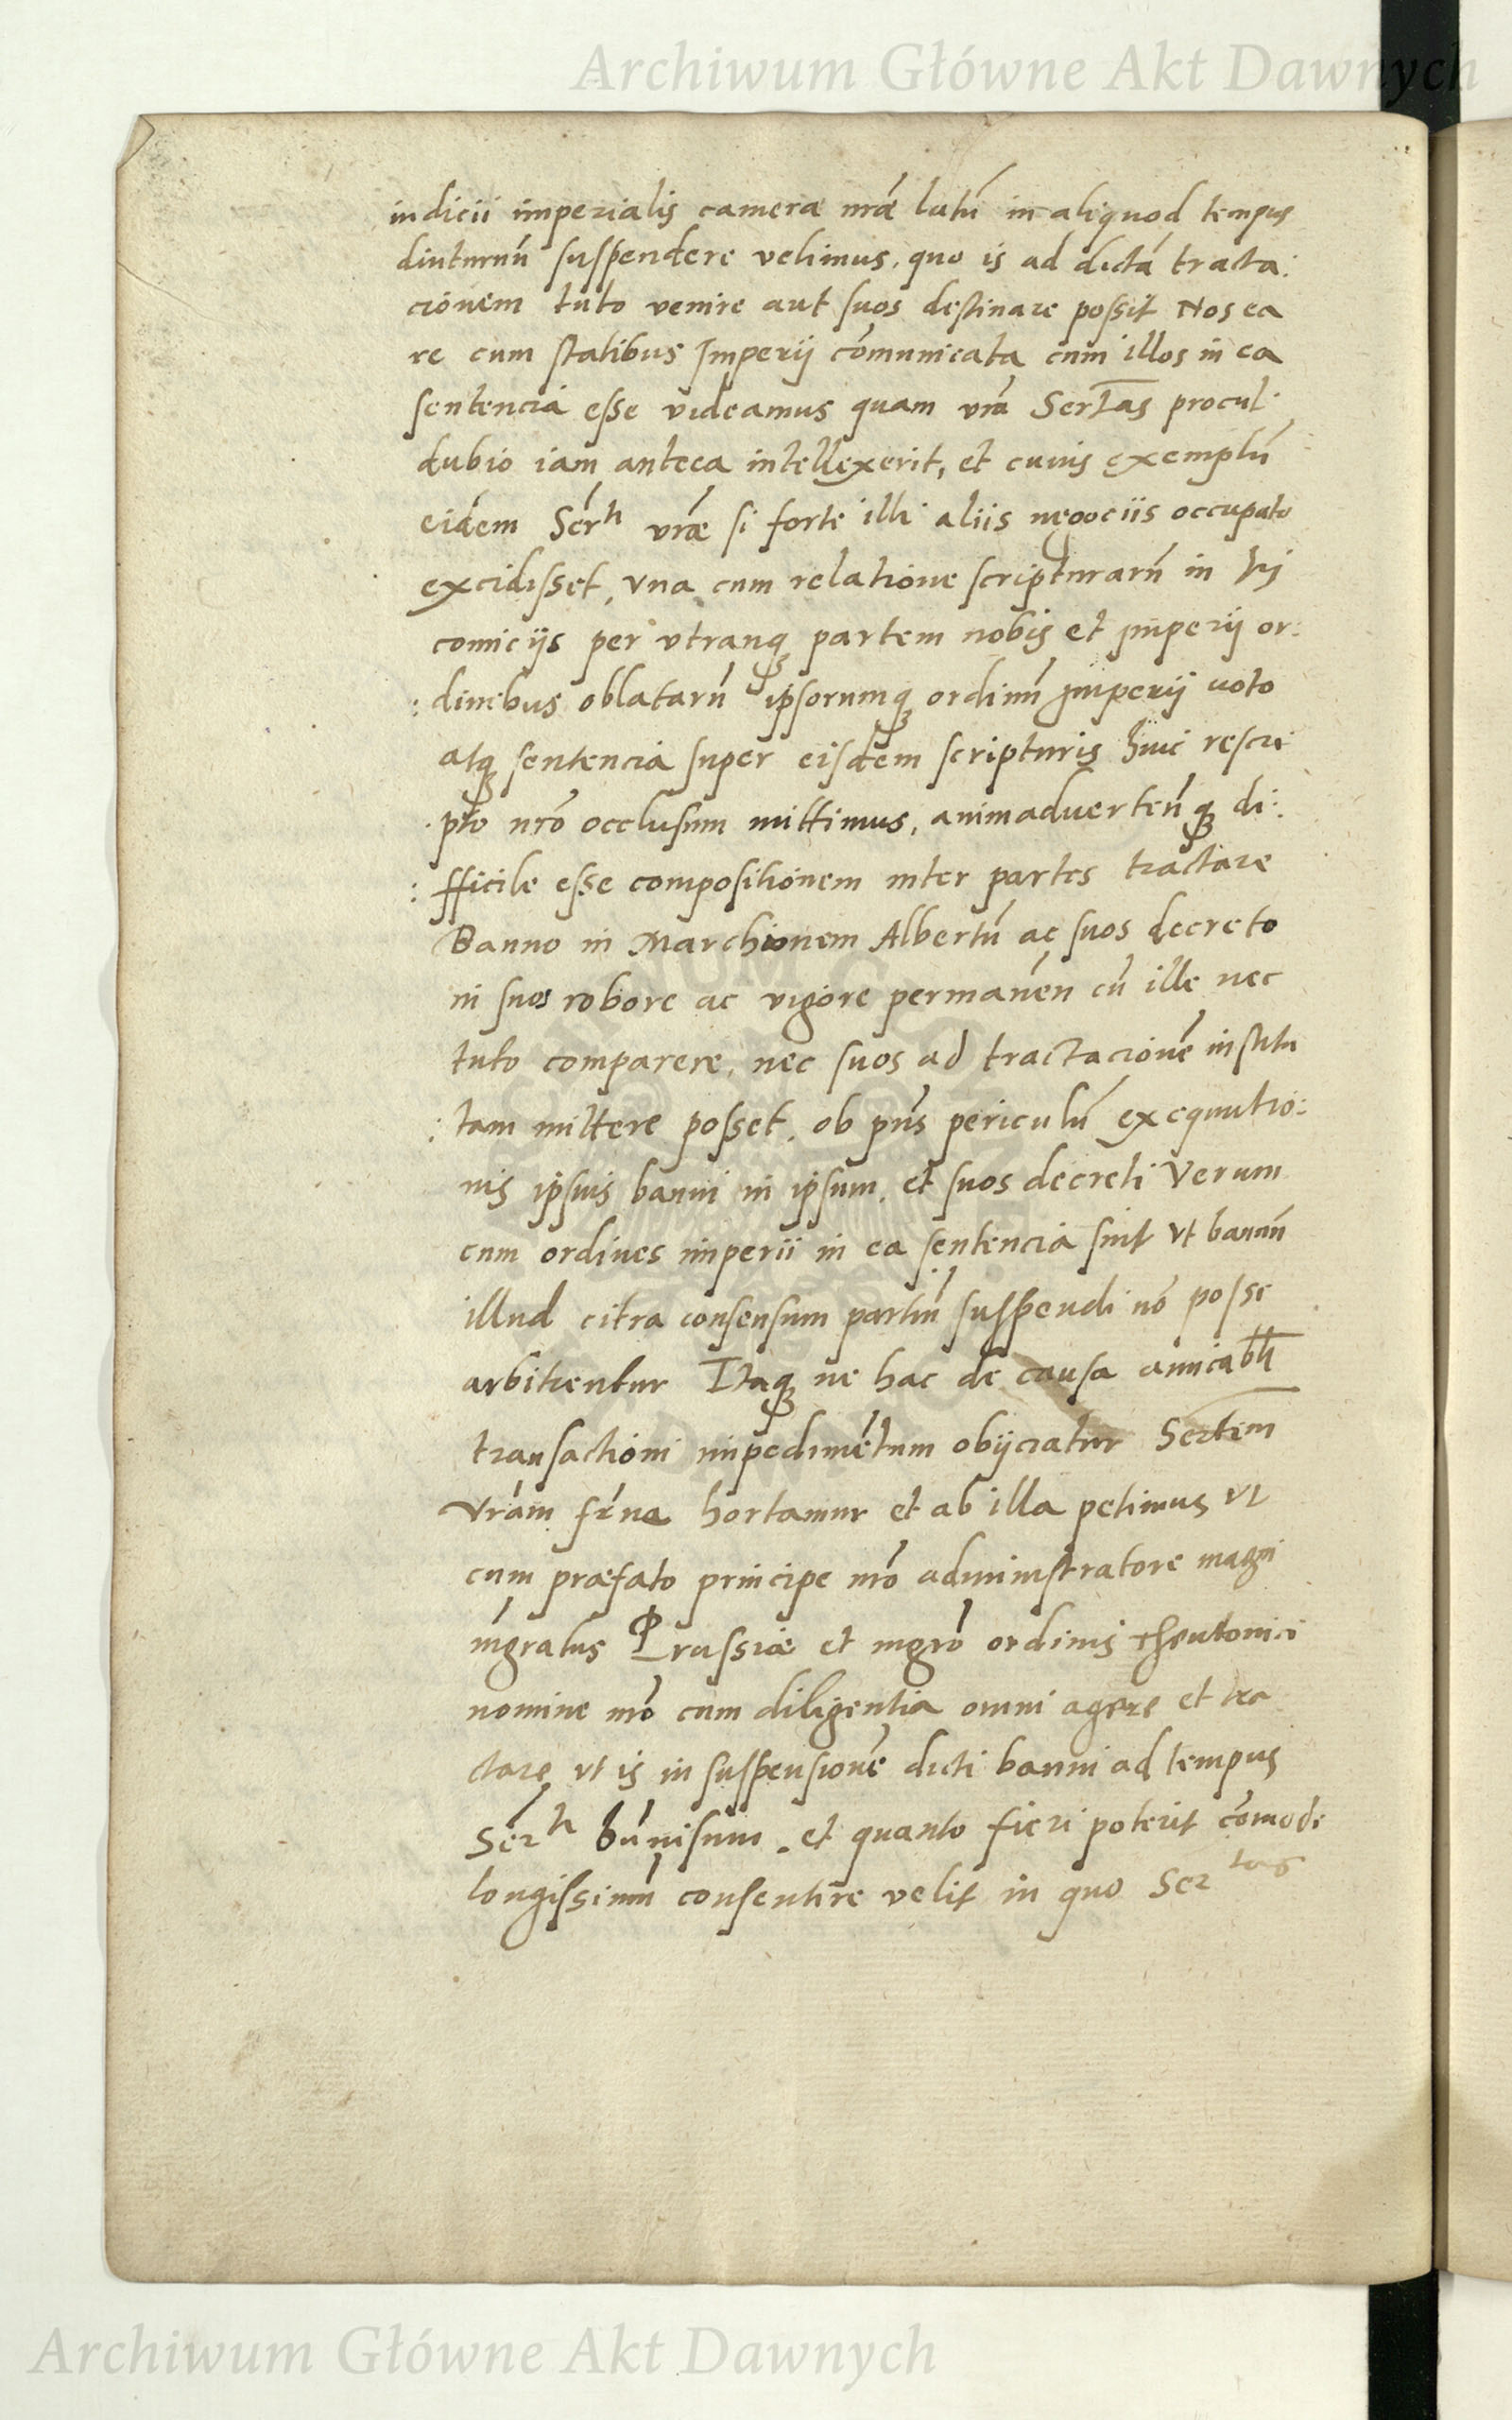 Archiwum Główne Akt Dawnych
iudicii imperialis cameræ nr̃æ latũ in aliquod tempus
diuturnũ suspendere velimus, quo is ad dictã tracta:
cionem tuto venire aut suos destinare possit Nos ea
re cum statibus Imperij cõmunicata cum illos in ea
sentencia esse videamus quam vr̃a Sertas procul
dubio iam antea intellexerit, et cuius exemplũ
eidem Serti vr̃æ si forte illi aliis negociis occupato
excidisset, vna cum relatione scripturarũ in hij
comicijs per vtranq̃ partem nobis et Imperij or:
: dinibus oblatarũ ipsorumq̃ ordinũ Imperij voto
atq̃ sentencia super eisdem scripturis huic rescri
pto nr̃o occlusum mittimus, animaduertenq̃ di:
: fficile esse compositionem inter partes tractare
Banno in Marchionem Albertũ ac suos decreto
in suos robore ac vigore permañen cũ ille nec
tuto comparere, nec suos ad tractacionẽ institu
: tam mittere posset, ob pñs periculũ exequutio:
nis ipsius banni in ipsum, et suos decreti Verum
cum ordines imperii in ea sentencia sint vt bannũ
illud citra consensum partiũ suspendi nõ posse
arbitrentur Itaq̃ ne hac de causa amicabli
transactioni impedimẽtum obijciatur Sertem
Vr̃am fr̃ne hortamur et ab illa petimus vt
cum præfato principe nr̃o administratore magni
mg̃ratus Prussiæ et mgr̃o ordinis Theutonici
nomine nr̃o cum diligentia omni agere et tra
ctare vt is in suspensionẽ dicti banni ad tempus
Serti bũuisum. et quanto fieri poterit cõmode
longissimũ consentire velit in quo Sertas
Archiwum Główne Akt Dawnych